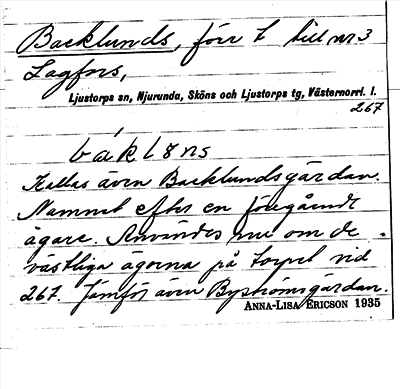 Backlunds, förr t till nr 3
Lagfors,
Ljustorps sn, Njurunda, Sköns och Ljustorps tg, Västernorrl. l.
267
bák l ɵns
Kallas även Backlundsgårdan.
Namnet efter en föregående
ägare. Användes nu om de
västliga ägorna på torpet vid
267. Jämför även Byströmsgårdan.
ANNA-LISA ERICSON 1935